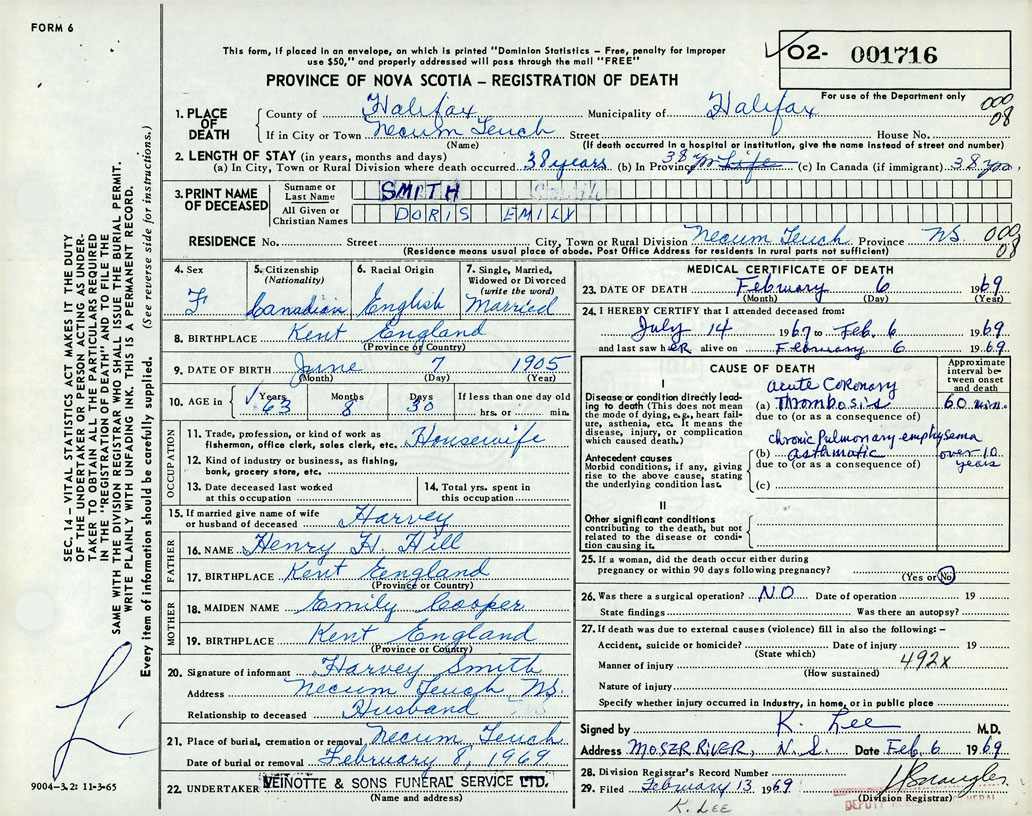 FORM 6
This form, if placed in an envelope, on which is printed "Dominion Statistics – Free, penalty for improper
use $50," and properly addressed will pass through the mail "FREE"
O2- 001716
For use of the Department only
PROVINCE OF NOVA SCOTIA – REGISTRATION OF DEATH
000
08
1. PLACE OF DEATH County of Halifax Municipality of Halifax
If in City or Town Necum Teuch Street House No.
(Name) (If death occurred in a hospital or institution, give the name instead of street and number)
2. LENGTH OF STAY (in years, months and days)
(a) In City, Town or Rural Division where death occurred 38 years (b) In Province 38 yrs Life (c) In Canada (if immigrant) 38 yrs
3. PRINT NAME OF DECEASED
Surname or Last Name SMITH
All Given or Christian Names DORIS EMILY
RESIDENCE No. Street City, Town or Rural Division Necum Teuch Province NS 000
08
(Residence means usual place of abode. Post Office Address for residents in rural parts not sufficient)
4. Sex F
5. Citizenship (Nationality) Canadian
6. Racial Origin English
7. Single, Married, Widowed or Divorced (write the word) Married
8. BIRTHPLACE Kent England
(Province or Country)
9. DATE OF BIRTH June 7 1905
(Month) (Day) (Year)
10. AGE in Years 63 Months 8 Days 30 If less than one day old
hrs. or min.
OCCUPATION
11. Trade, profession or kind of work as fisherman, office clerk, sales clerk, etc. Housewife
12. Kind of industry or business, as fishing, bank, grocery store, etc.
13. Date deceased last worked at this occupation
14. Total yrs. spent in this occupation
15. If married give name of wife or husband of deceased Harvey
FATHER
16. NAME Henry H. Hill
17. BIRTHPLACE Kent England
(Province or Country)
MOTHER
18. MAIDEN NAME Emily Cooper
19. BIRTHPLACE Kent England
(Province or Country)
20. Signature of informant Harvey Smith
Address Necum Teuch NS.
Relationship to deceased Husband
21. Place of burial, cremation or removal Necum Teuch
Date of burial or removal February 8, 1969
22. UNDERTAKER VEINOTTE & SONS FUNERAL SERVICE LTD.
(Name and address)
MEDICAL CERTIFICATE OF DEATH
23. DATE OF DEATH February 6 1969
(Month) (Day) (Year)
24. I HEREBY CERTIFY that I attended deceased from:
July 14 1967 to Feb. 6 1969
and last saw hER alive on February 6 1969
CAUSE OF DEATH
Approximate interval between onset and death
I
Disease or condition directly leading to death (This does not mean the mode of dying, e.g., heart failure, asthenia, etc. It means the disease, injury, or complication which caused death.)
acute Coronary
(a) Thrombosis 60 min.
due to (or as a consequence of)
Antecedent causes
Morbid conditions, if any, giving rise to the above cause, stating the underlying condition last.
chronic Pulmonary emphysema
(b) asthmatic over 10 years
due to (or as a consequence of)
(c)
II
Other significant conditions
contributing to the death, but not related to the disease or condition causing it.
25. If a woman, did the death occur either during
pregnancy or within 90 days following pregnancy?
(Yes or No)
26. Was there a surgical operation? NO Date of operation 19
State findings Was there an autopsy?
27. If death was due to external causes (violence) fill in also the following: –
Accident, suicide or homicide? Date of injury 19
(State which)
Manner of injury 492x
(How sustained)
Nature of injury
Specify whether injury occurred in industry, in home, or in public place
Signed by K. Lee M.D.
Address MOSER RIVER, N.S. Date Feb. 6 1969
28. Division Registrar's Record Number
29. Filed February 13 1969
(Division Registrar)
K. LEE
SEC. 14 – VITAL STATISTICS ACT MAKES IT THE DUTY
OF THE UNDERTAKER OR PERSON ACTING AS UNDER-
TAKER TO OBTAIN ALL THE PARTICULARS REQUIRED
IN THE "REGISTRATION OF DEATH" AND TO FILE THE
SAME WITH THE DIVISION REGISTRAR WHO SHALL ISSUE THE BURIAL PERMIT.
WRITE PLAINLY WITH UNFADING INK. THIS IS A PERMANENT RECORD.
Every item of information should be carefully supplied. (See reverse side for instructions.)
9004-3.2: 11-3-65